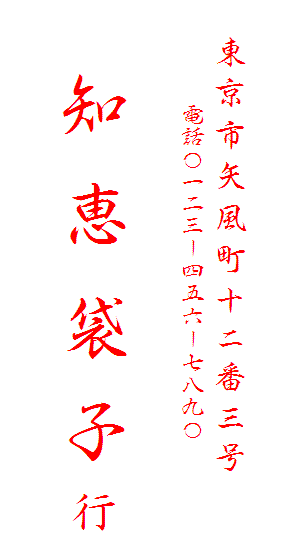 東京市矢風町十二番三号
電話〇一二三ー四五六ー七八九〇
知恵袋子行